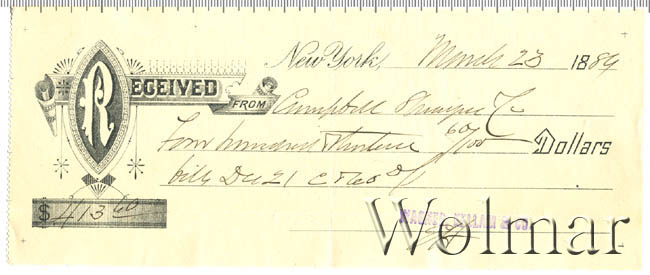 New York, March 23 1889
RECEIVED FROM Campbell
Four hundred thirteen 60/100 Dollars
bill Dec 21
$ 413 60
Wolmar